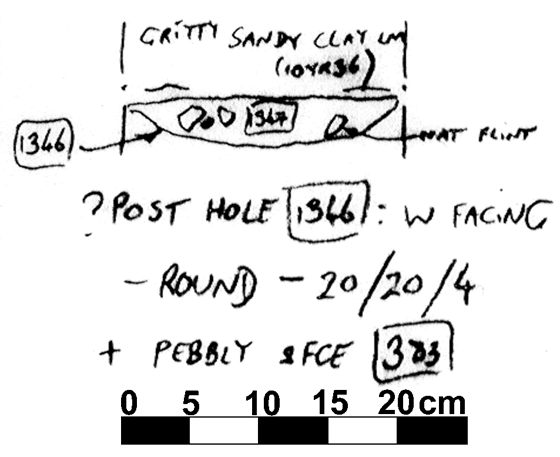 GRITTY SANDY CLAY LM
(10YR36)
1347
1346
NAT FLINT
? POST HOLE 1346 : W FACING
- ROUND - 20/20/4
+ PEBBLY SFCE
0 5 10 15 20 cm